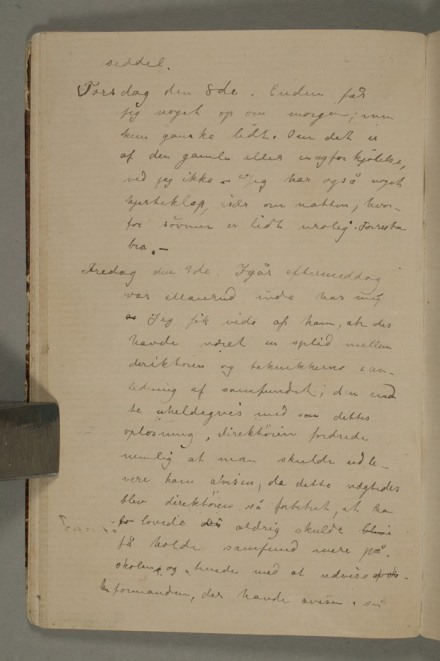 seddel.
Torsdag den 8de. Endnu får
jeg noget op om morgen; men
kun ganske lidt. Om det er
af den gamle eller ny forkjølelse,
ved jeg ikke. – Jeg har også noget
hjerteklap, især om natten, hvor-
for søvnen er lidt urolig. Forresten
bra. –
Fredag den 9de. Igår eftermiddag
var inde hos mig
Jeg fik vide af ham, at der
havde været en splid mellem
direktøren og teknikkerne i an-
ledning af samfundet; den end
te uheldigvis med dettes
opløsning, direktøren fordrede
nemlig at man skulde udle-
vere ham avisen, da dette nægtedes
blev direktøren så forbitret, at han
lovede aldrig skulde
få holde samfund mere på
skolen, og truede med at udvise
formanden, der havde avisen.